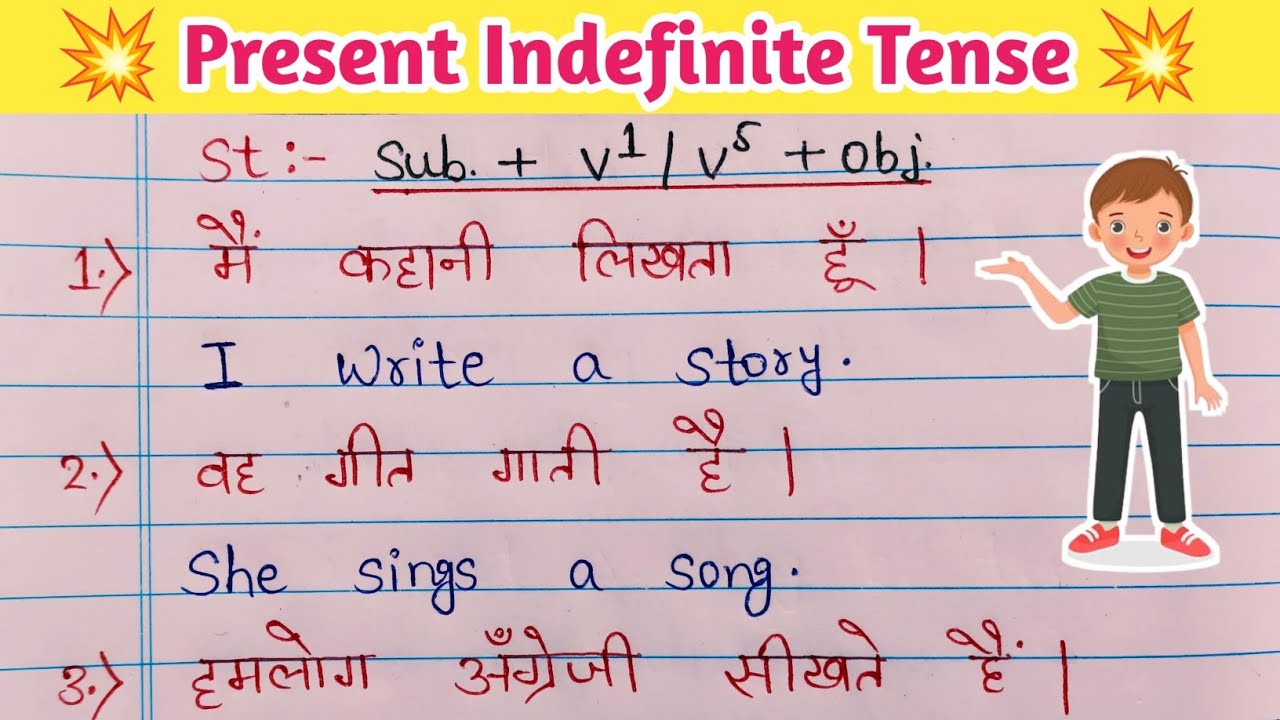 Present Indefinite Tense
St :- Sub. + V¹ / V⁵ + Obj.
1.) मैं कहानी लिखता हूँ ।
I write a story.
2.) वह गीत गाती है ।
She sings a song.
3.) हमलोग अँग्रेजी सीखते हैं ।